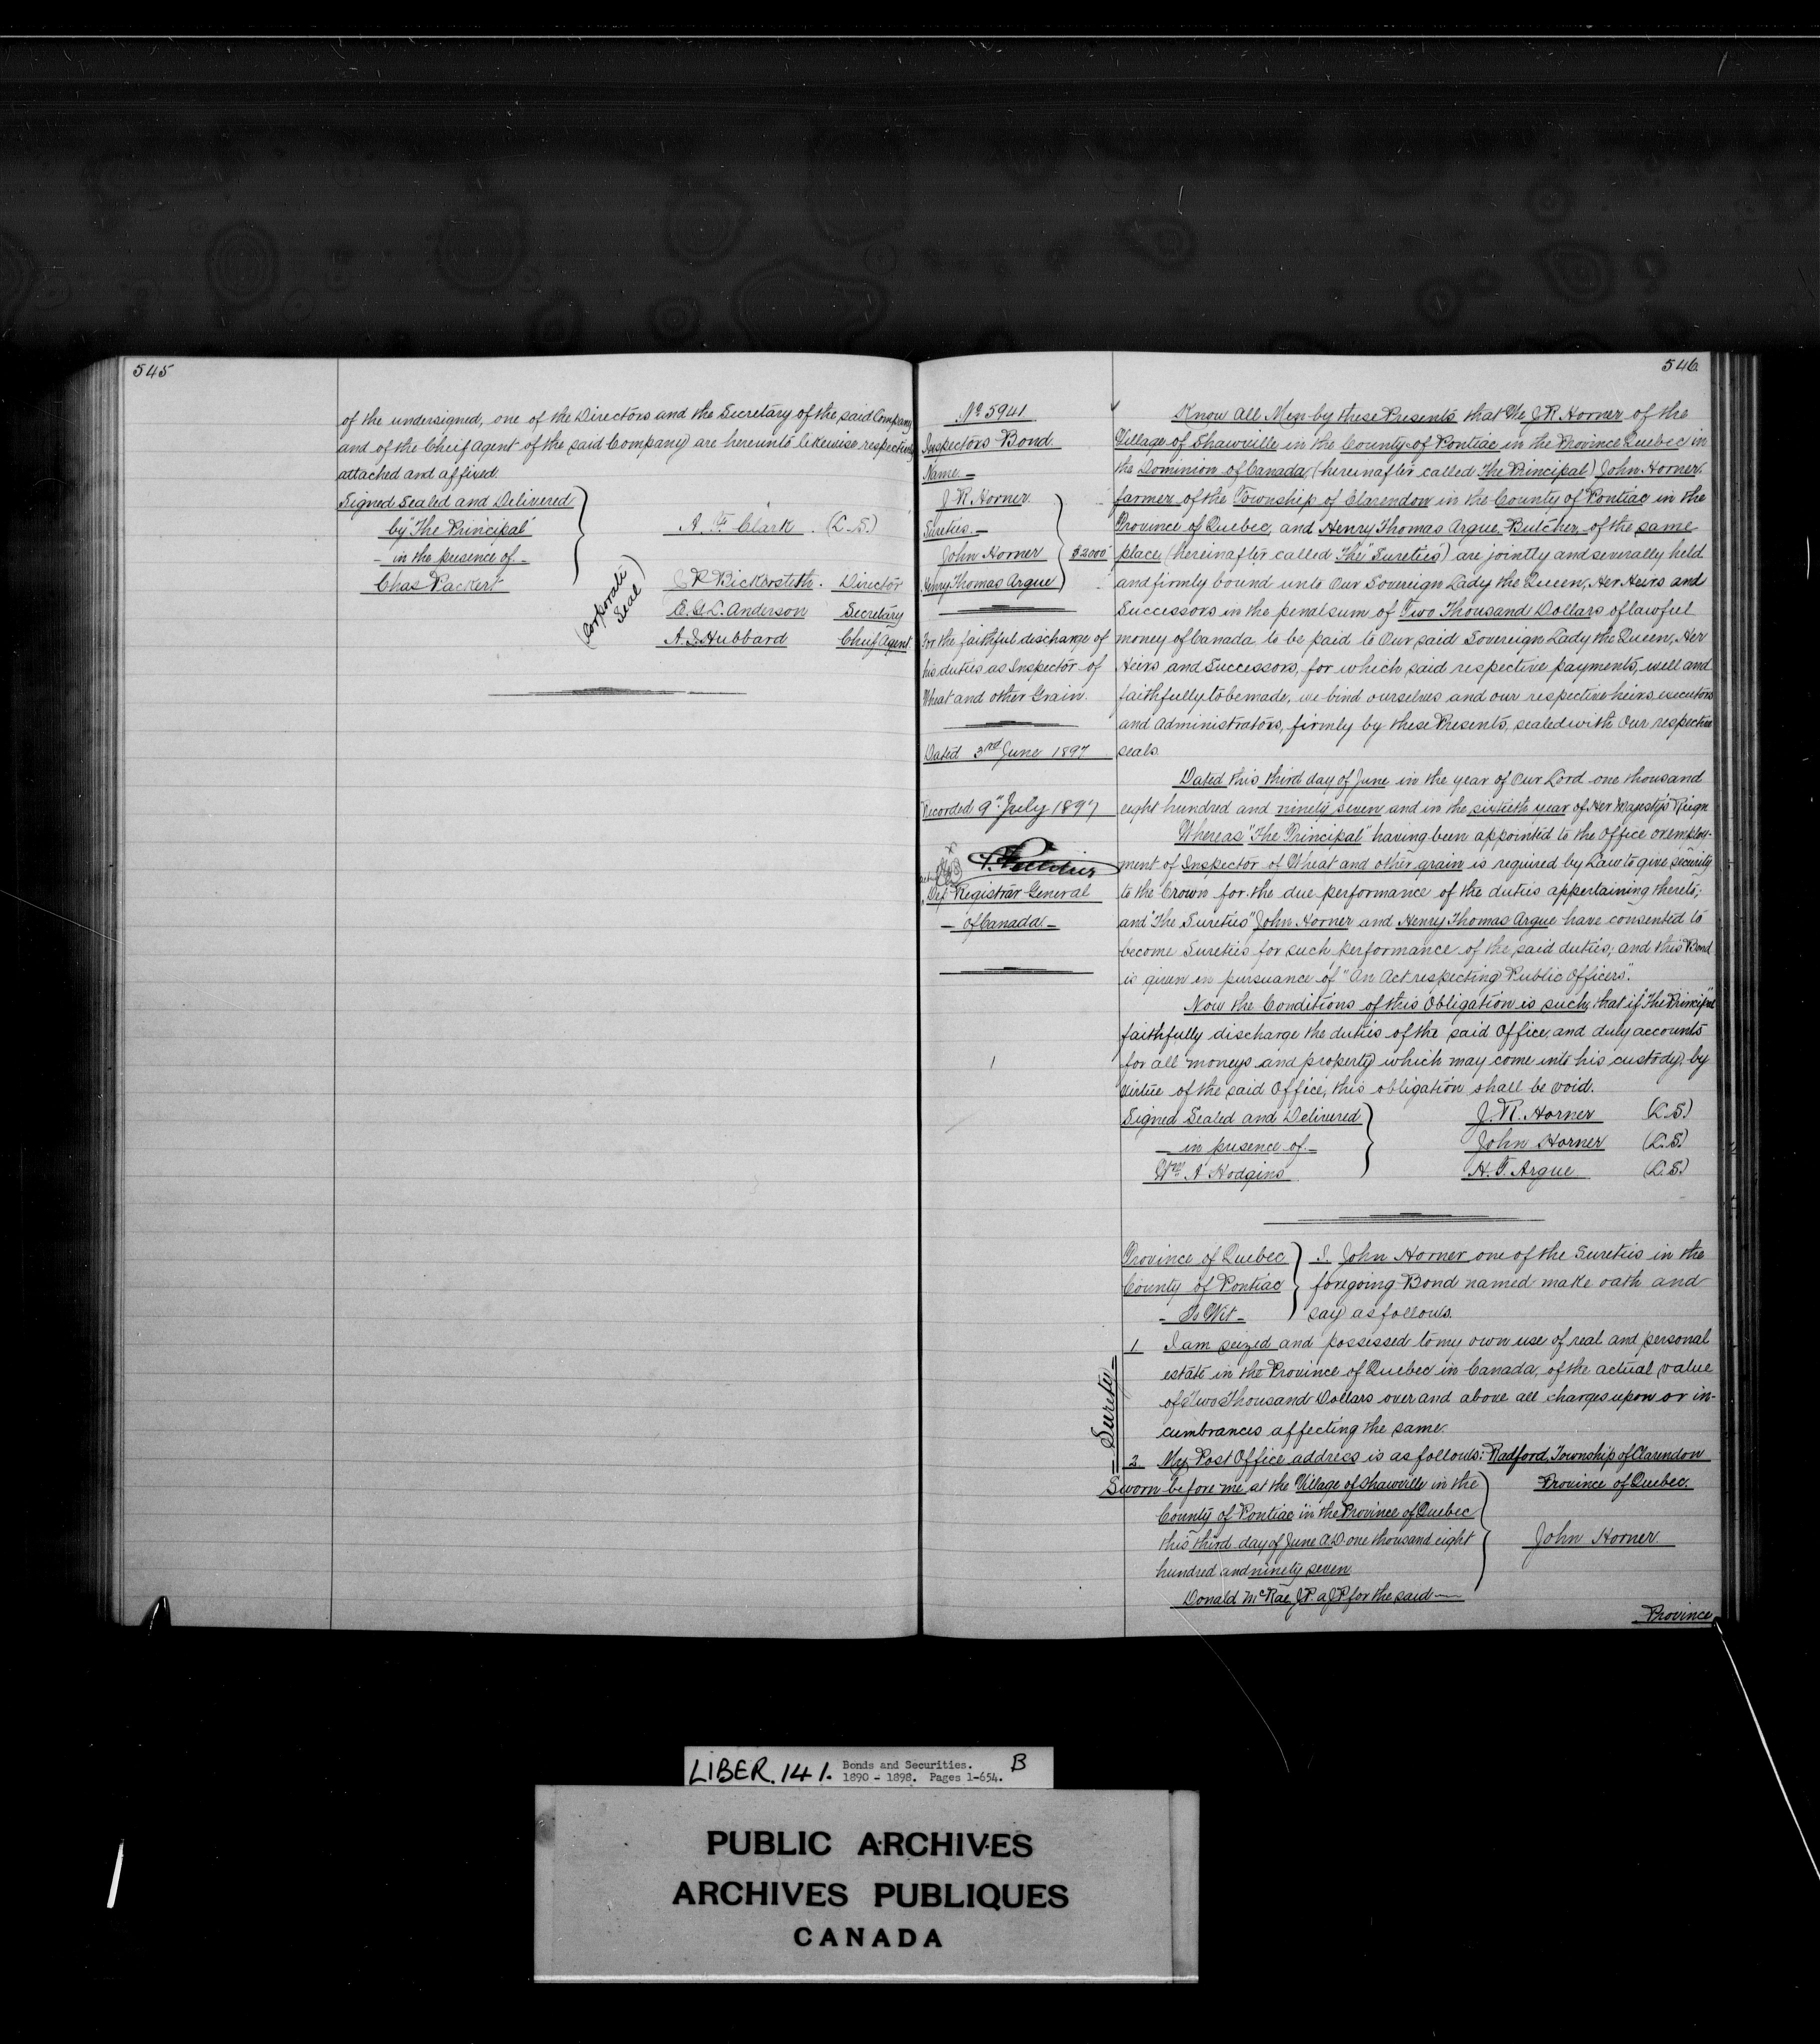 545
of the undersigned, one of the Directors and the Secretary of the said Company
and of the Cheif Agent of the said Company are hereunto likewise respectively
attached and affixed.
Signed Sealed and Delivered
by "The Principal"
- in the presence of -
Chas Packert
A. F. Clark. (L.S.)
(Corporate Seal)
J P Bickersteth. Director
E. G. L. Anderson Secretary
A. S. Hubbard Cheif Agent
546
No 5941
Inspectors Bond.
Name -
J. R. Horner
Sureties -
John Horner
$2000
Henry Thomas Argue
For the faithful discharge of
his duties as Inspector of
Wheat and other Grain.
Dated 3rd June 1897
Recorded 9" July 1897
Dep Registrar General
- of Canada -
Know All Men by these Presents that We J. R. Horner of the
Village of Shawville in the County of Pontiac in the Province Quebec in
the Dominion of Canada (hereinafter called The Principal) John Horner
farmer of the Township of Clarendon in the County of Pontiac in the
Province of Quebec, and Henry Thomas Argue, Butcher, of the same
place (hereinafter called The "Sureties") are jointly and severally held
and firmly bound unto Our Sovereign Lady the Queen, Her Heirs and
Successors in the penal sum of Two Thousand Dollars of lawful
money of Canada to be paid to Our said Sovereign Lady the Queen, Her
Heirs and Successors, for which said respective payments, well and
faithfully to be made, we bind ourselves and our respective heirs, executors
and administrators, firmly by these Presents, sealed with Our respective
seals.
Dated this third day of June in the year of Our Lord one thousand
eight hundred and ninety seven and in the sixtieth year of Her Majesty's Reign
Whereas "The Principal" having been appointed to the Office or employ-
ment of Inspector of Wheat and other grain is required by Law to give security
to the Crown for the due performance of the duties appertaining thereto;
and "The Sureties" John Horner and Henry Thomas Argue have consented to
become Sureties for such performance of the said duties; and this Bond
is given in pursuance of "An Act respecting Public Officers".
Now the Conditions of this Obligation is such, that if "The Principal"
faithfully discharge the duties of the said Office, and duly accounts
for all moneys and property which may come into his custody, by
virtue of the said Office, this obligation shall be void.
Signed Sealed and Delivered
- in presence of -
Wm A Hodgins
J. R. Horner (L.S.)
John Horner (L.S.)
H. T. Argue (L.S.)
Province of Quebec
County of Pontiac
- To Wit -
I. John Horner one of the Sureties in the
foregoing Bond named make oath and
say as follows.
= Surety =
1 I am seized and possessed to my own use of real and personal
estate in the Province of Quebec in Canada, of the actual value
of Two Thousand Dollars over and above all charges upon or in-
cumbrances affecting the same.
2 My Post Office address is as follows: Radford, Township of Clarendon
Province of Quebec.
Sworn before me at the Village of Shawville in the
County of Pontiac in the Province of Quebec
this third day of June A.D. one thousand eight
hundred and ninety seven
John Horner.
Donald McRae, J.P. a J.P. for the said -
Province
LIBER. 141. Bonds and Securities. B
1890 - 1898. Pages 1-654.
PUBLIC ARCHIVES
ARCHIVES PUBLIQUES
CANADA